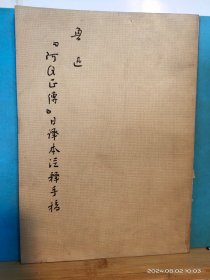 鲁迅
《阿Q正傳》日譯本注釋手稿
2024.08.02 10:03